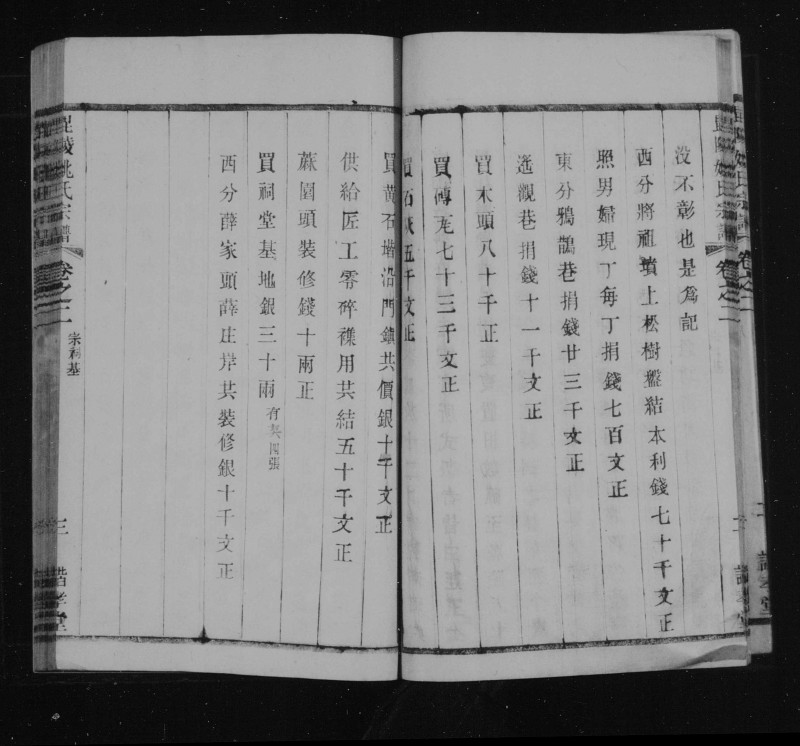 沒不彰也是為記
西分將祖墳上松樹盤結本利錢七十千文正
照男婦現丁每丁捐錢七百文正
東分鴉鵲巷捐錢廿三千文正
遙觀巷捐錢十一千文正
買木頭八十千正
買磚瓦七十三千文正
買石灰五千文正
買黃石堦沿門鎮共價銀十千文正
供給匠工零碎襍用共結五十千文正
蔴園頭裝修錢十兩正
買祠堂基地銀三十兩 有契四張
西分薛家頭薛庄岸共裝修銀十千文正
毘陵姚氏宗譜
卷之二
宗祠基
三
諧孝堂